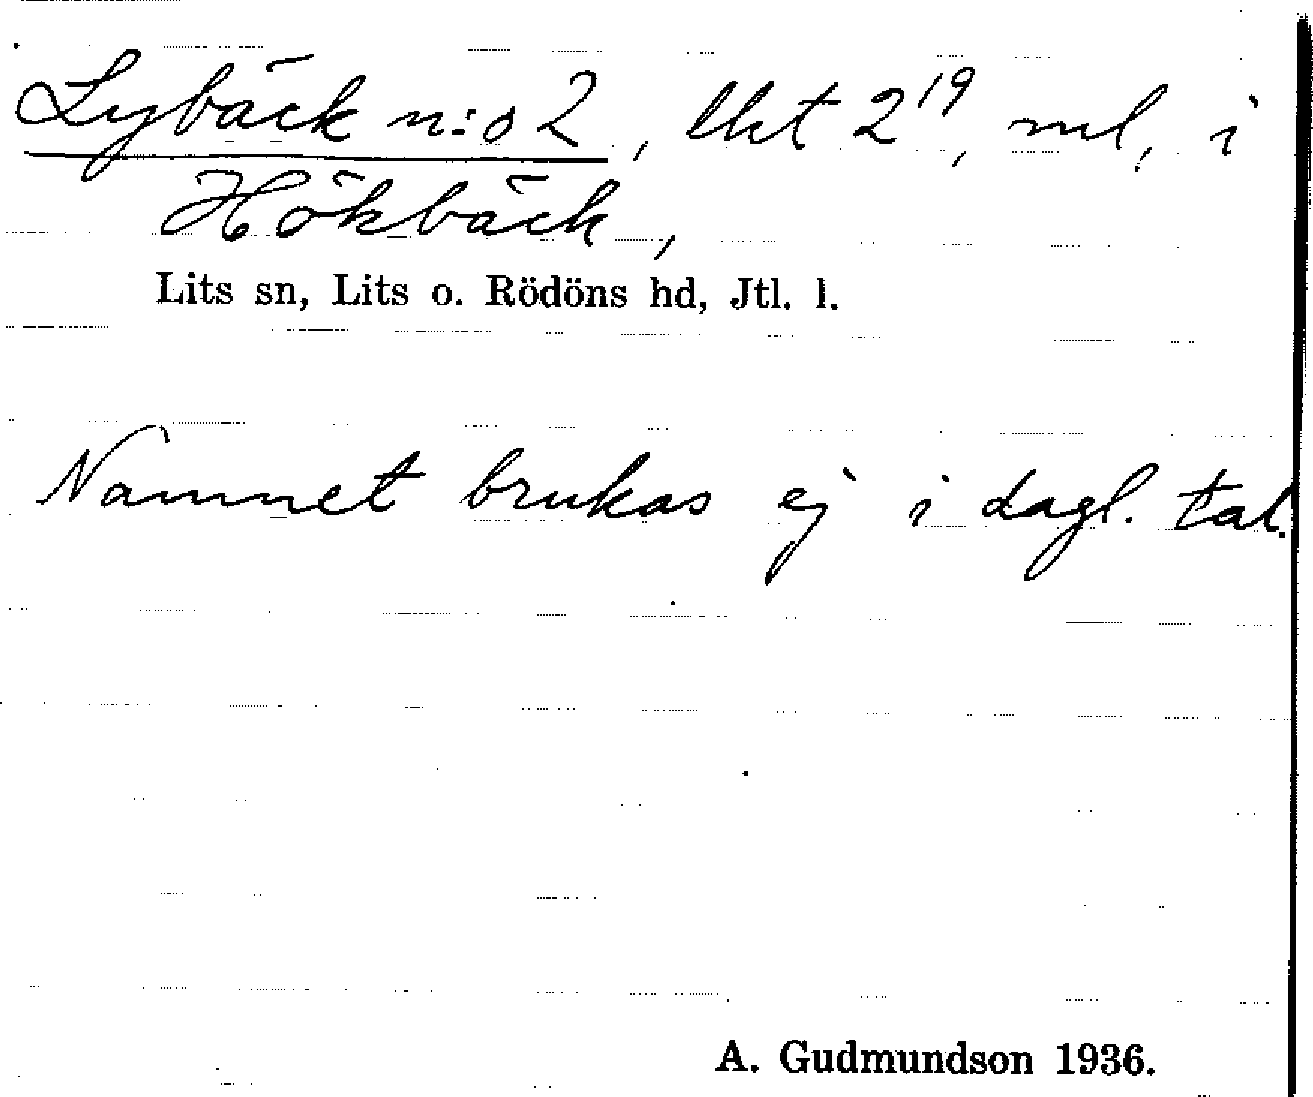 Lybäck n:o 2, lht 2¹⁹, ml, i
Hökbäck,
Lits sn, Lits o. Rödöns hd, Jtl. l.
Namnet brukas ej i dagl. tal.
A. Gudmundson 1936.